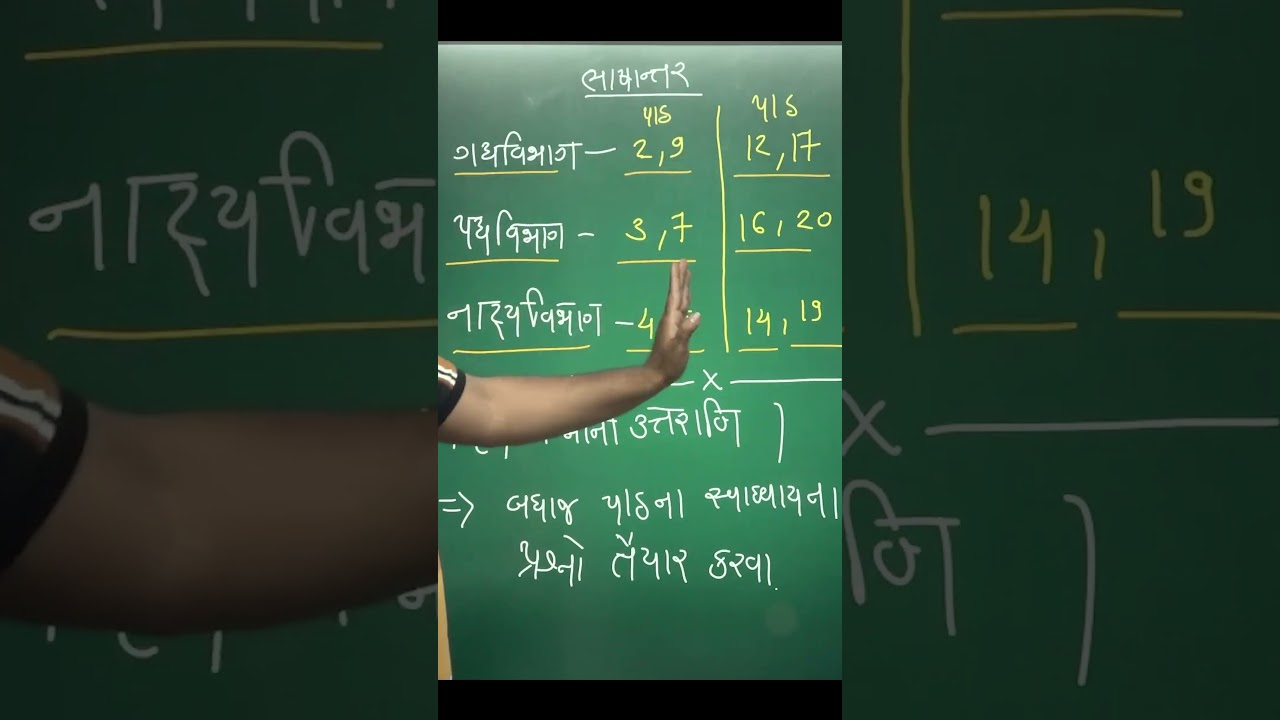 ભાષાન્તર
પાઠ પાઠ
ગદ્યવિભાગ — 2,9 12,17
પદ્યવિભાગ - 3,7 16,20
નાટ્યવિભાગ - 4, 14,19
x
ઉત્તરાણિ )
=> બધાજ પાઠના સ્વાધ્યાયના
પ્રશ્નો તૈયાર કરવા.